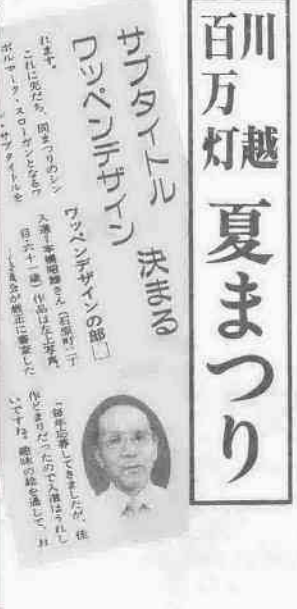 川越
百万灯
夏まつり
サブタイトル
ワッペンデザイン 決まる
れます。
これに先だち、同まつりのシン
ボルマーク・スローガンとなるワ
サブタイトルを
ワッペンデザインの部
入選＝本橋昭さん（石原町二丁
目・六十一歳）作品は左上写真。
員会が厳正に審査した
“毎年応募してきましたが、佳
作どまりだったので入選はうれし
いですね。趣味の絵を通して、お